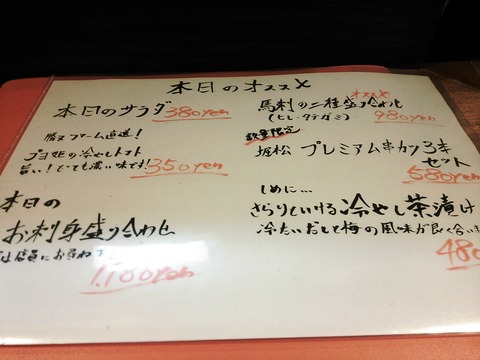 本日のオススメ
本日のサラダ 380yen
ファーム直送!
プヨ姫の冷やしトマト
旨い!とっても濃い味です! 350yen
本日の
お刺身盛り合わせ
は店員にお尋ね下
1,180yen
オススメ
馬刺の二種盛り合わせ
(ヒレ・タテガミ) 980yen
数量限定
坂松 プレミアム串カツ3本
セット
580yen
しめに…
さらりといける冷やし茶漬け
冷たいだしと梅の風味が良く合い
480